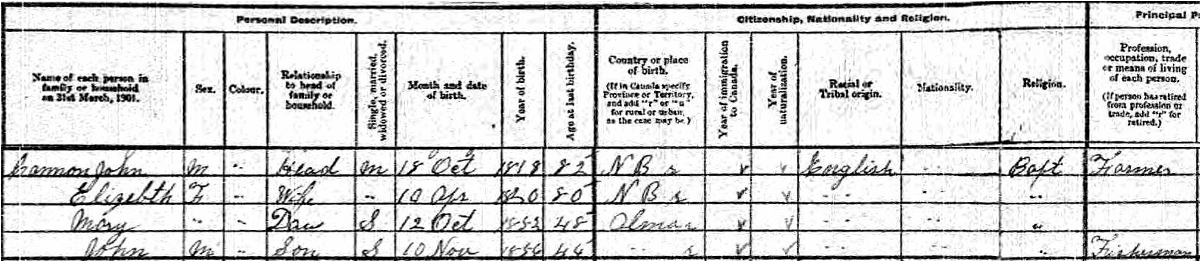 Personal Description. Citizenship, Nationality and Religion. Principal P
Name of each person in family or household on 31st March, 1901. Sex. Colour. Relationship to head of family or household. Single, married, widowed or divorced. Month and date of birth. Year of birth. Age at last birthday. Country or place of birth. (If in Canada specify Province or Territory, and add "r" or "u" for rural or urban, as the case may be.) Year of immigration to Canada. Year of naturalization. Racial or Tribal origin. Nationality. Religion. Profession, occupation, trade or means of living of each person. (If person has retired from profession or trade, add "r" for retired.)
Cannon John M " Head M 18 Oct 1818 82 N B r English " Bapt Farmer
Elizebth F " Wife " 10 Apr 1820 80 N B r " " "
Mary " " Dau S 12 Oct 48 r " " "
John M " Son S 10 Nov " r " " " Fisherman